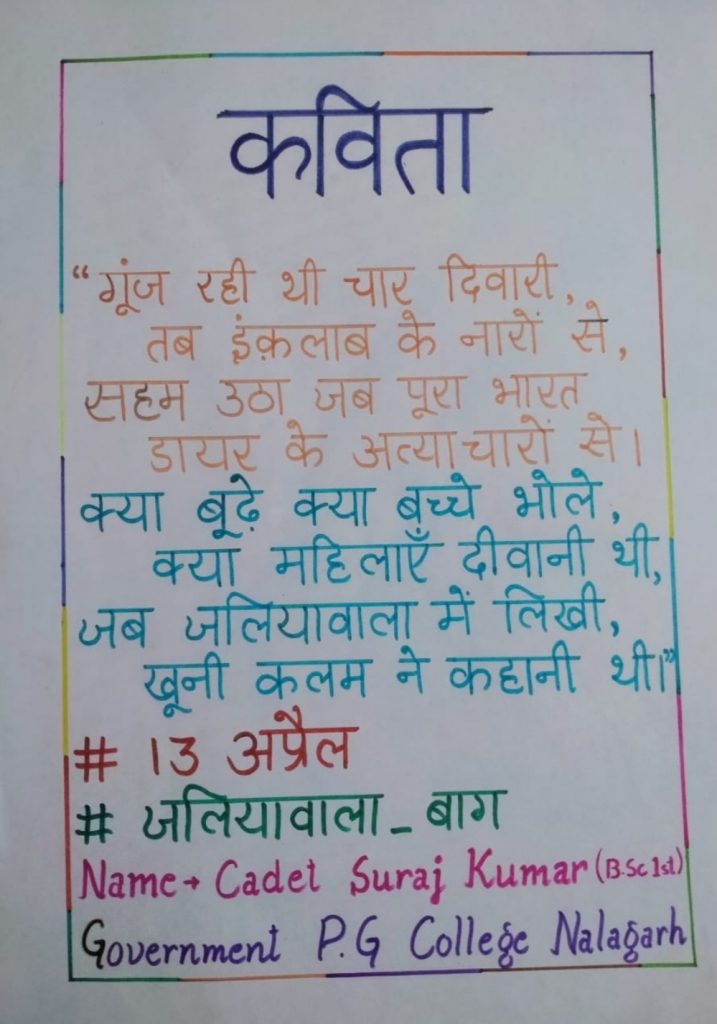 कविता
“गूंज रही थी चार दिवारी,
तब इंक़लाब के नारों से,
सहम उठा जब पूरा भारत
डायर के अत्याचारों से।
क्या बूढ़े क्या बच्चे भोले,
क्या महिलाएँ दीवानी थी,
जब जलियावाला में लिखी,
खूनी कलम ने कहानी थी।”
# 13 अप्रैल
# जलियावाला_बाग
Name→ Cadet Suraj Kumar (B.Sc 1st)
Government P.G College Nalagarh